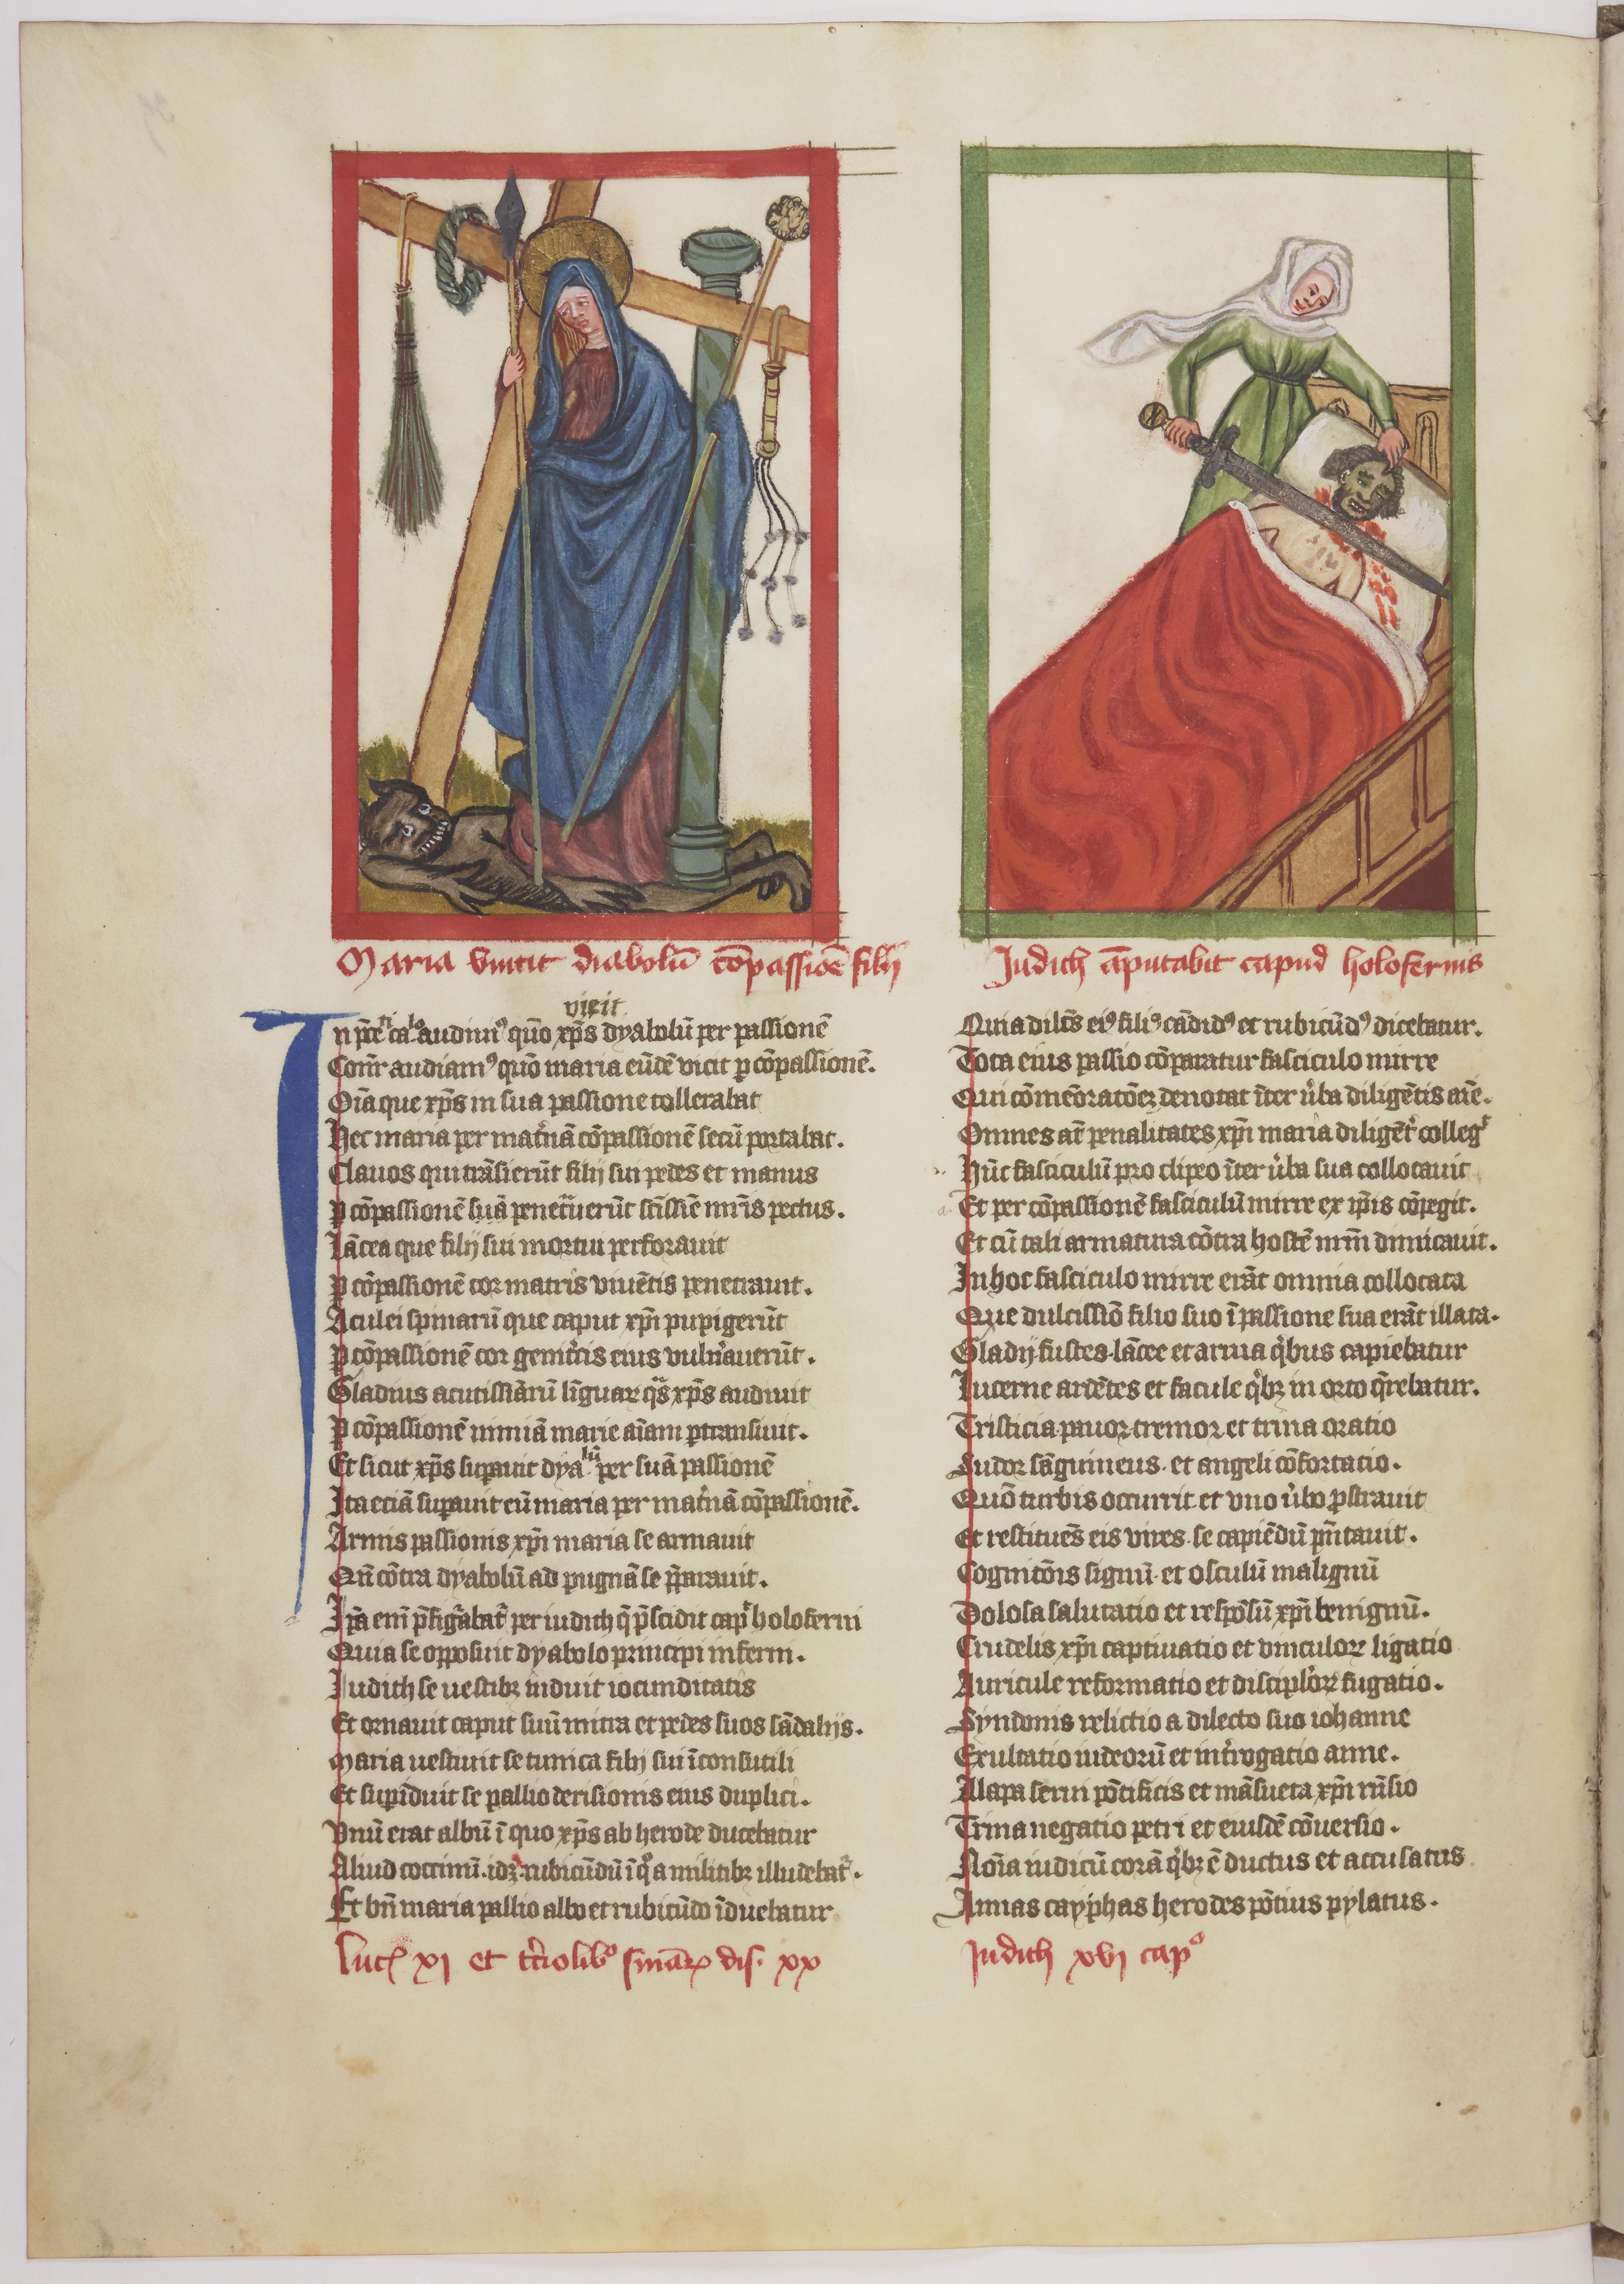 Maria vincit diabolū cōpassiōe filij
vicit
In p̄cēti caᵒ audiuimꝰ quō xp̄s dyabolū per passionē
Conr̄ audiamꝰ quō maria eūdē vicit ꝑ cōpassionē.
Oīa que xp̄s in sua passione tollerabat
Hec maria per mat̓nā cōpassionē secū portabat.
Clauos qui trāsierūt filij sui pedes et manus
ꝑ cōpassionē suā penetͣuerūt sc̄issiē mr̄is pectus.
Lācea que filij sui mortui perforauit
ꝑ cōpassionē cor matris viuētis penetrauit.
Aculei spinarū que caput xp̄i pupigerūt
ꝑ cōpassionē cor genitͥcis eius vuln̓auerūt.
Gladius acutissīarū līguaꝝ qͣs xp̄s audiuit
ꝑ cōpassionē nimiā marie aīam ꝑtransiuit.
Et sicut xp̄s suꝑauit dyalū per suā passionē
Ita eciā suꝑauit eū maria per mat̓nā cōpassionē.
Armis passionis xp̄i maria se armauit
Qn̄ cōtra dyabolū ad pugnā se p̄parauit.
Ip̄a eni p̄figͣabat᷑ per iudith q̄ p̄scidit cap᷑ holoferni
Quia se opposuit dyabolo principi inferni.
Iudith se uestibꝫ induit iocunditatis
Et ornauit caput suū mitra et pedes suos sādalijs.
Maria uestiuit se tunica filij sui īconsutili
Et supīduit se pallio derisionis eius duplici.
Vnū erat albū ī quo xp̄s ab herode ducebatur
Aliud coccinū .idꝫ. rubicūdū ī qͦ a militibꝫ illudebat᷑.
Et bn̄ maria pallio albo et rubicūdo īduebatur
Luc̄ xj et tc̓io libͦ sniāꝝ dis. xx
Judith āputabit capud holofernis
Quia dilc̄s eiꝰ filiꝰ cādidꝰ et rubicūdꝰ dicebatur.
Tota eius passio cōparatur fasciculo mirre
Qui cōmēoratōeꝫ denotat īter ub̓a diligētis aīe.
Omnes at̄ penalitates xp̄i maria diligēt᷑ colleg᷑
Hūc fasciculū pro clipeo īter ub̓a sua collocauit
Et per cōpassionē fasciculū mirre ex ip̄is cōpegit.
Et cū tali armatura cōtra hostē nr̄m dimicauit.
In hoc fasciculo mirre erāt omnia collocata
Que dulcissiō filio suo ī passione sua erāt illata.
Gladij fustes lācee et arma qͥbus capiebatur
Lucerne ardētes et facule qͥbꝫ in orto q̄rebatur.
Tristicia pauor tremor et trina oratio
Sudor sāguineus et angeli cōfortatio.
Quō turbis occurrit et vno ub̓o ꝓstrauit
Et restituēs eis vires se capiēdū p̄ntauit.
Cognitōis signū et osculū malignū
Dolosa salutatio et respōsū xp̄i benignū.
Crudelis xp̄i captiuatio et vinculoꝝ ligatio
Auricule reformatio et discipl̓oꝝ fugatio.
Syndonis relictio a dilecto suo iohanne
Exultatio iudeorū et int̓rogatio anne.
Alapa serui pōtificis et māsueta xp̄i rn̄sio
Trina negatio petri et eiusdē cōuersio.
Noīa iudicū corā qͥbꝫ ē ductus et accusatus
Annas cayphas herodes pōtius pylatus.
Judith xvj capͦ